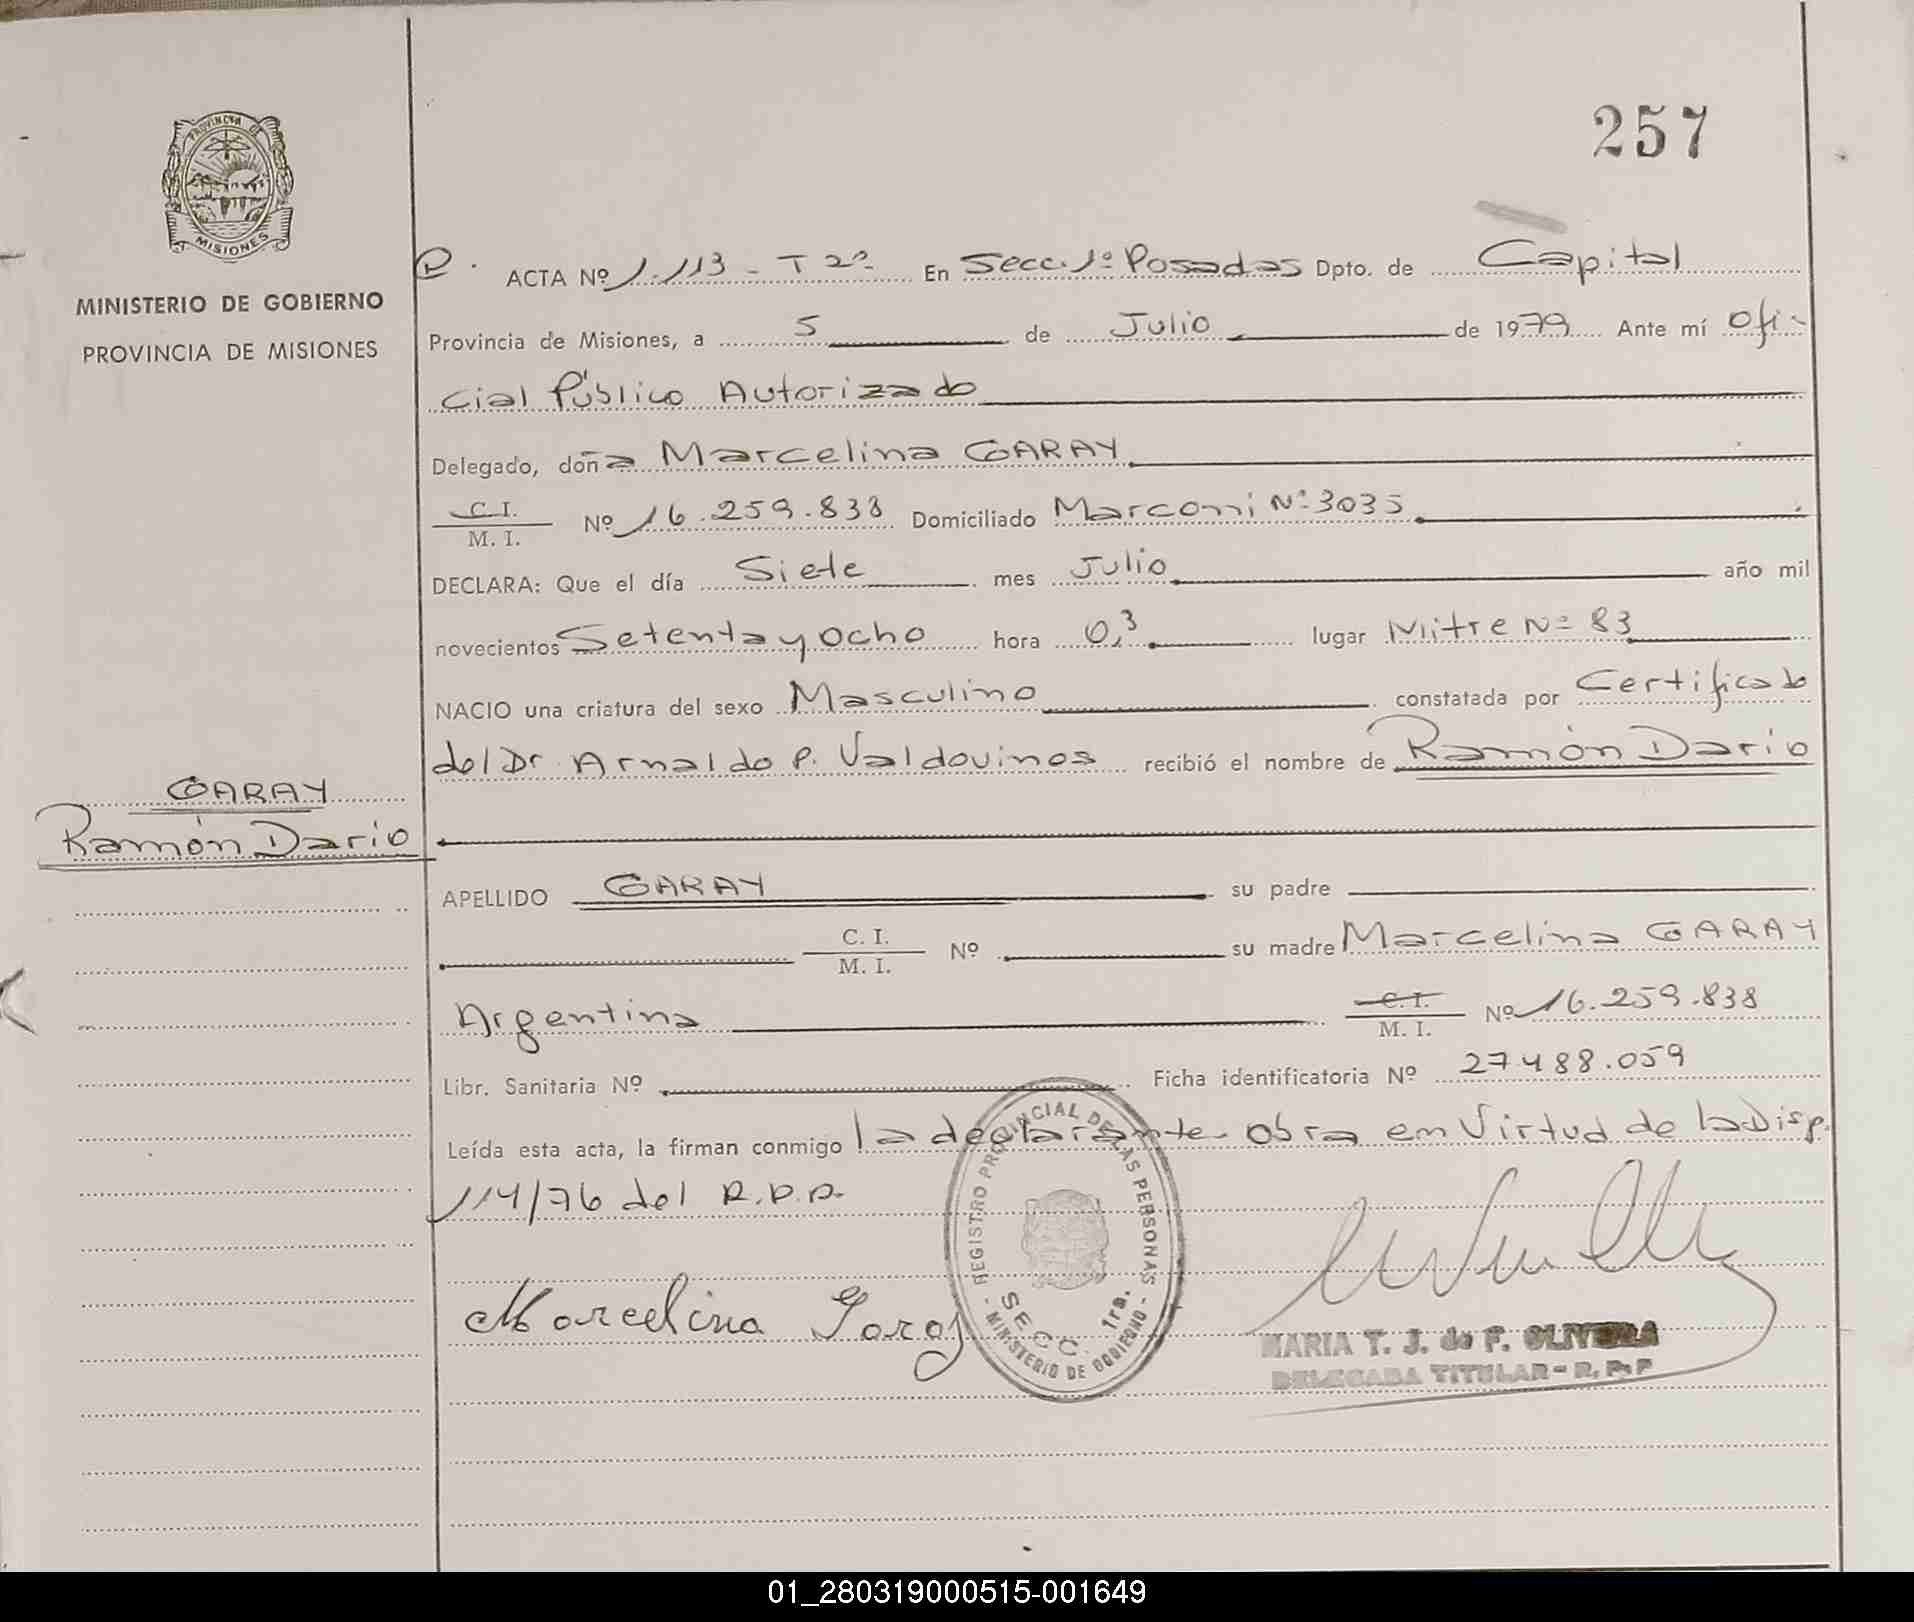 257
PROVINCIA DE
MISIONES
MINISTERIO DE GOBIERNO
PROVINCIA DE MISIONES
ACTA Nº 1.113 - T 2º En Secc. 1º Posadas Dpto. de Capital
Provincia de Misiones, a 5 de Julio de 1979 Ante mí Ofi-
cial Público Autorizado
Delegado, doña Marcelina GARAY
C. I.
M. I.
Nº 16.259.838 Domiciliado Marconi Nº 3035
DECLARA: Que el día Siete mes Julio año mil
novecientos Setenta y Ocho hora 0,3 lugar Mitre Nº 83
NACIO una criatura del sexo Masculino constatada por Certificado
del Dr. Arnaldo P. Valdovinos recibió el nombre de Ramón Dario
GARAY
Ramón Dario
APELLIDO GARAY su padre
C. I.
M. I.
Nº su madre Marcelina GARAY
Argentina C. I.
M. I.
Nº 16.259.838
Libr. Sanitaria Nº Ficha identificatoria Nº 27.488.059
Leída esta acta, la firman conmigo la declarante Obra en Virtud de la Disp.
114/76 del R.P.P.
Marcelina Garay
REGISTRO PROVINCIAL DE LAS PERSONAS
SECC. 1ra.
- MINISTERIO DE GOBIERNO -
MARIA T. J. de F. OLIVERA
DELEGADA TITULAR - R. P. P
01_280319000515-001649